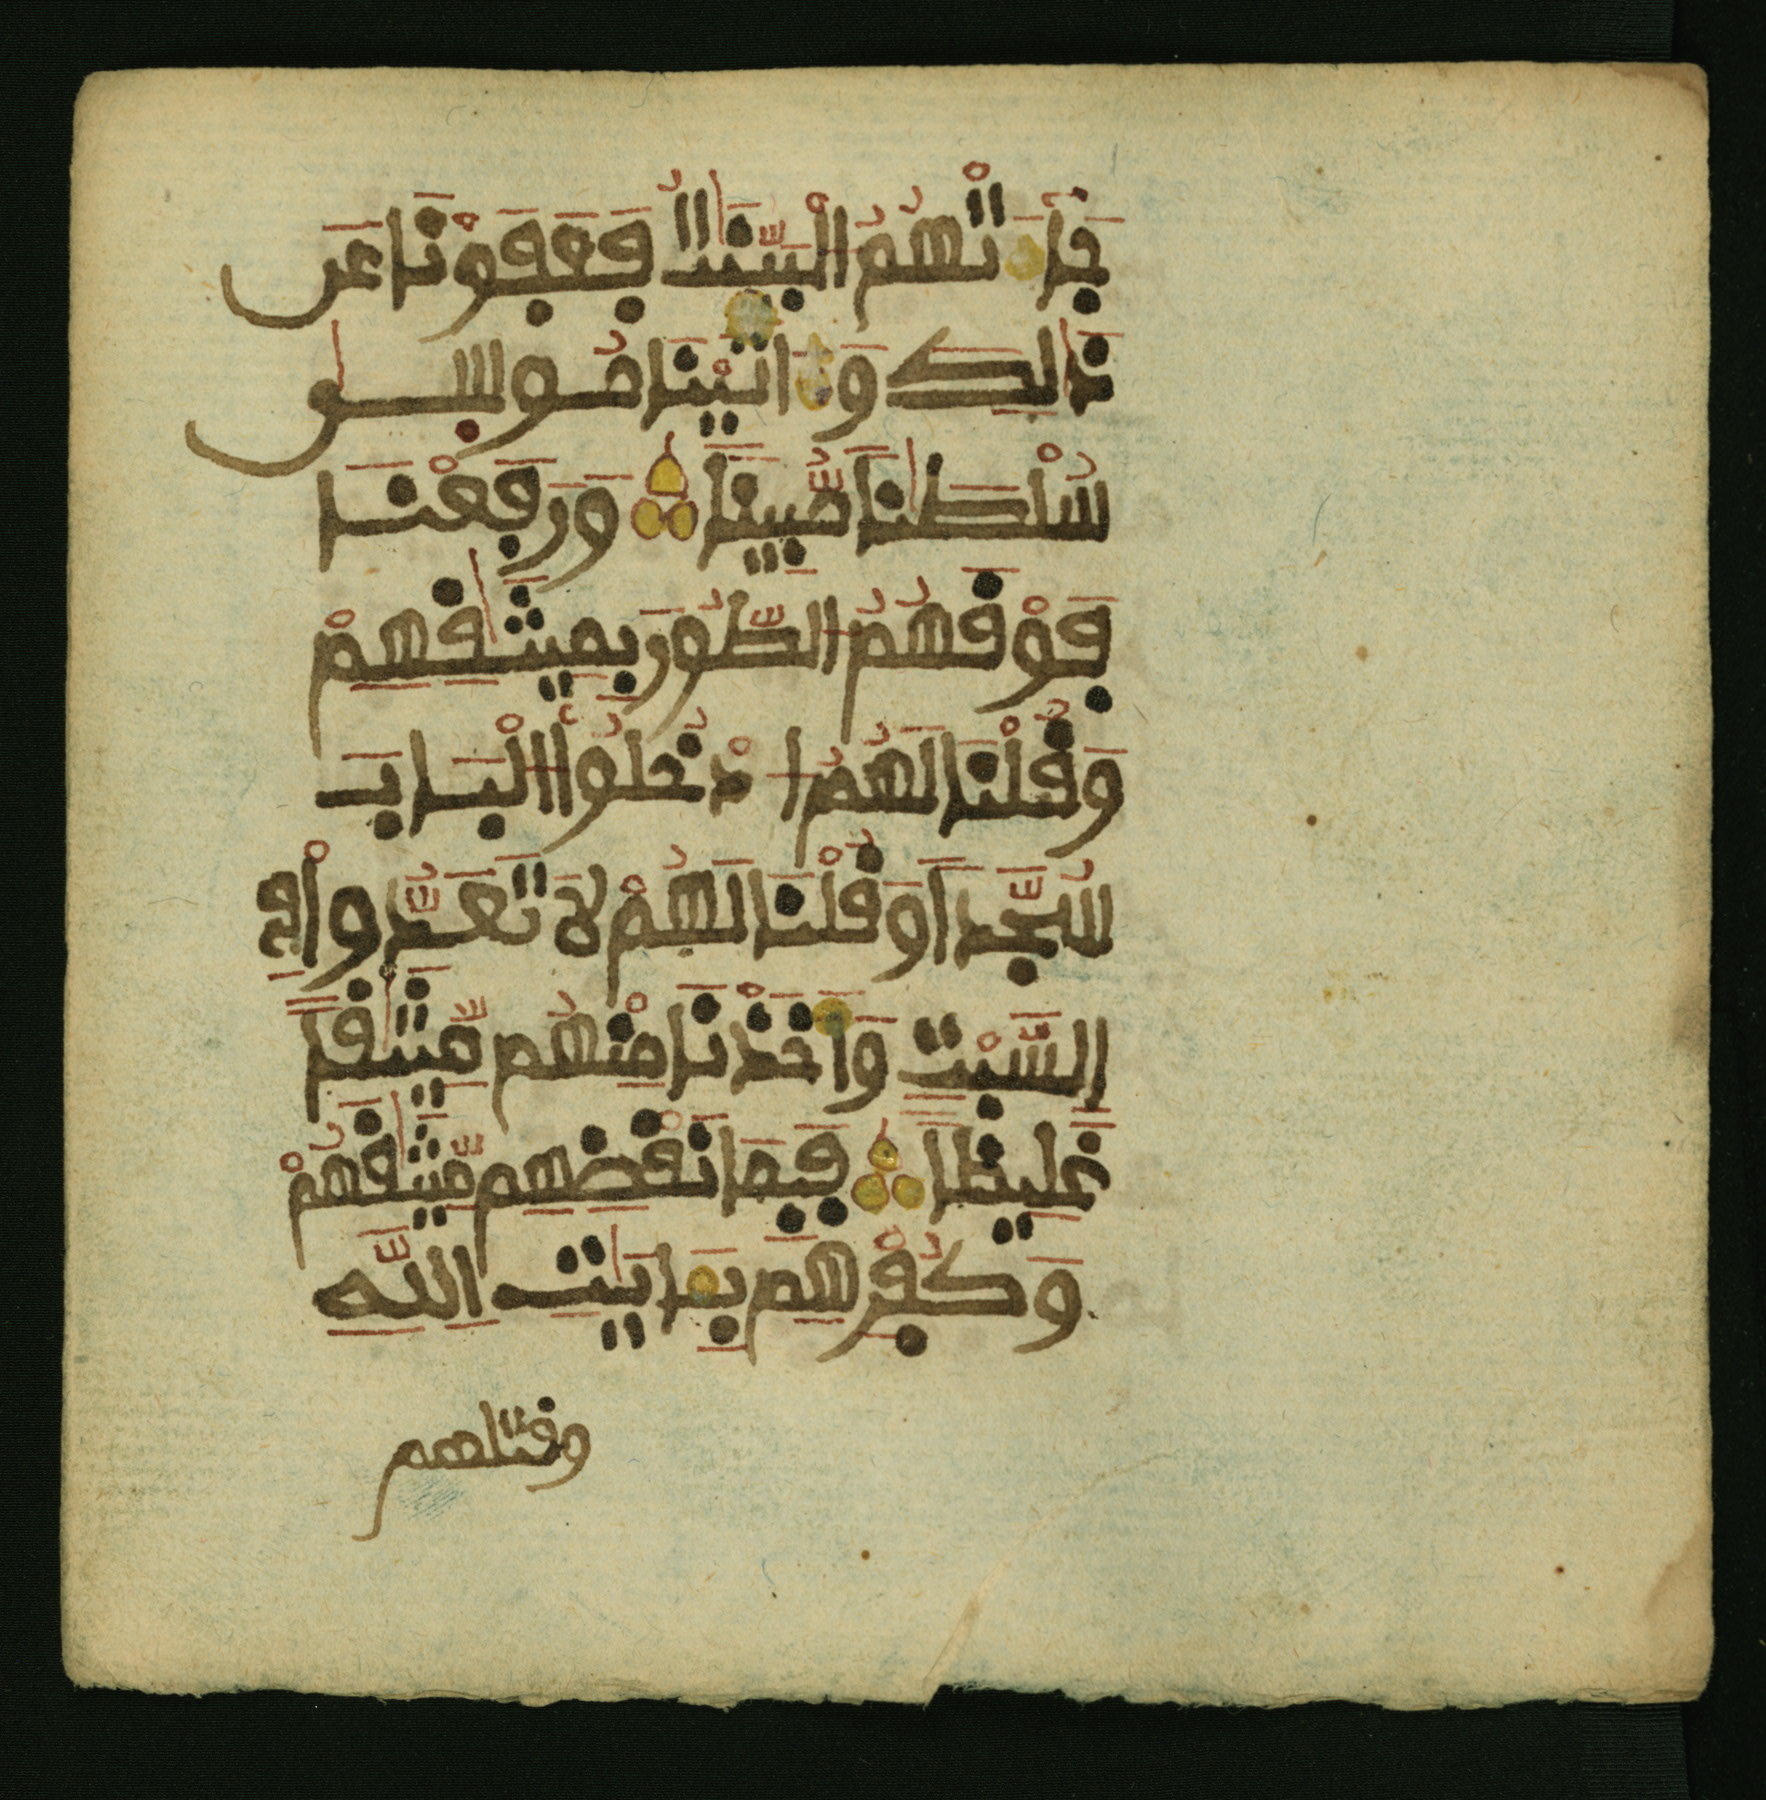 جَآءَتْهُمُ الْبَيِّنَٰتُ فَعَفَوْنَا عَن
ذَٰلِكَ وَءَاتَيْنَا مُوسَىٰ
سُلْطَٰنًا مُّبِينًا وَرَفَعْنَا
فَوْقَهُمُ الطُّورَ بِمِيثَٰقِهِمْ
وَقُلْنَا لَهُمُ ادْخُلُوا الْبَابَ
سُجَّدًا وَقُلْنَا لَهُمْ لَا تَعَدُّوا فِي
السَّبْتِ وَأَخَذْنَا مِنْهُم مِّيثَٰقًا
غَلِيظًا فَبِمَا نَقْضِهِم مِّيثَٰقَهُمْ
وَكُفْرِهِم بِـَٔايَٰتِ اللَّهِ
وقتلهم